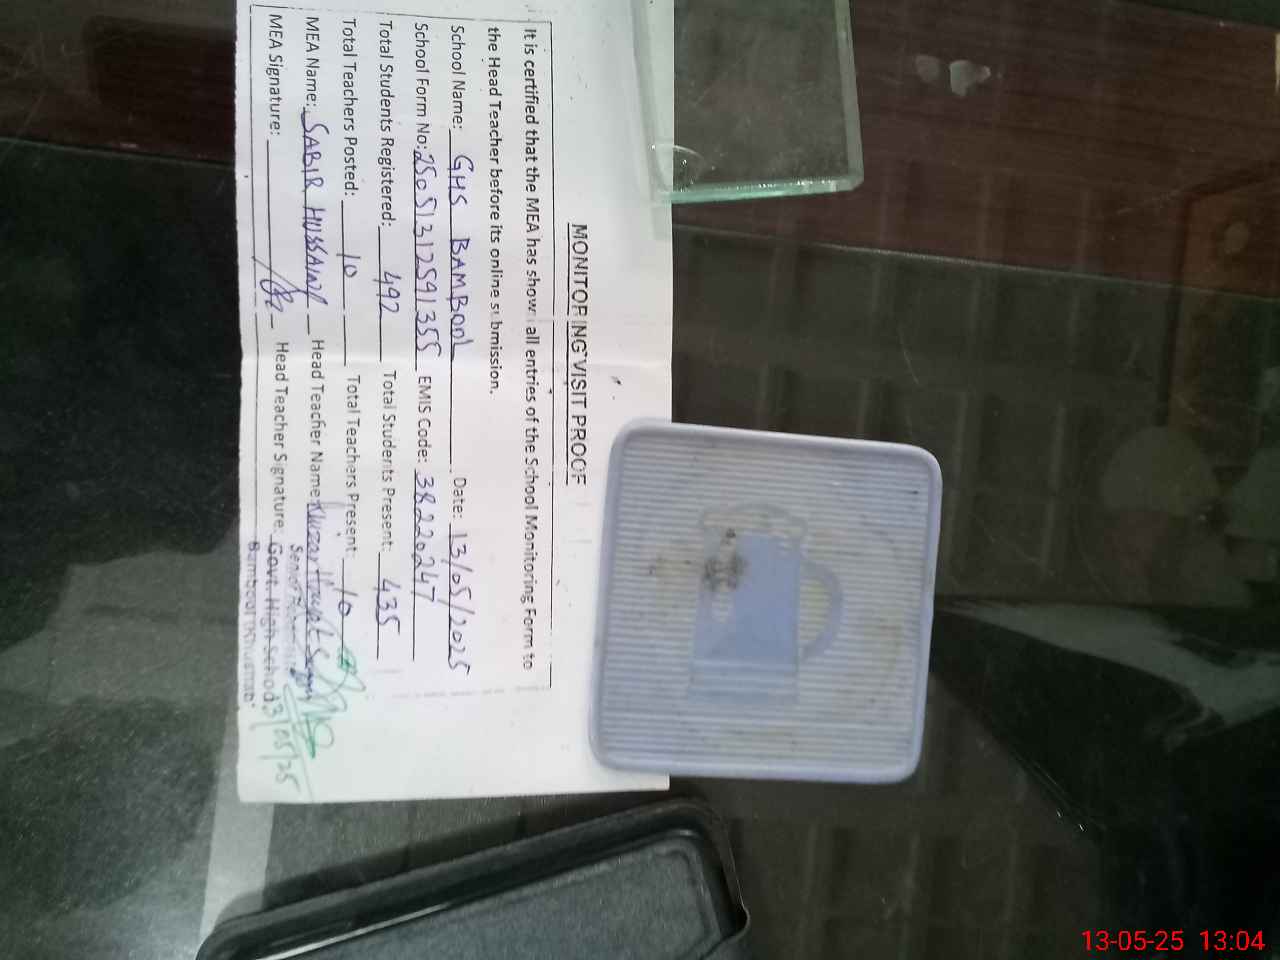 MONITORING VISIT PROOF
It is certified that the MEA has shown all entries of the School Monitoring Form to
the Head Teacher before its online submission.
School Name: GHS BAMBOOL Date: 13/05/2025
School Form No: 25051312591355 EMIS Code: 38220247
Total Students Registered: 492 Total Students Present: 435
Total Teachers Posted: 10 Total Teachers Present: 10
MEA Name: SABIR HUSSAIN Head Teacher Name:
MEA Signature: Head Teacher Signature:
Govt. High School
13/05/25
13-05-25 13:04